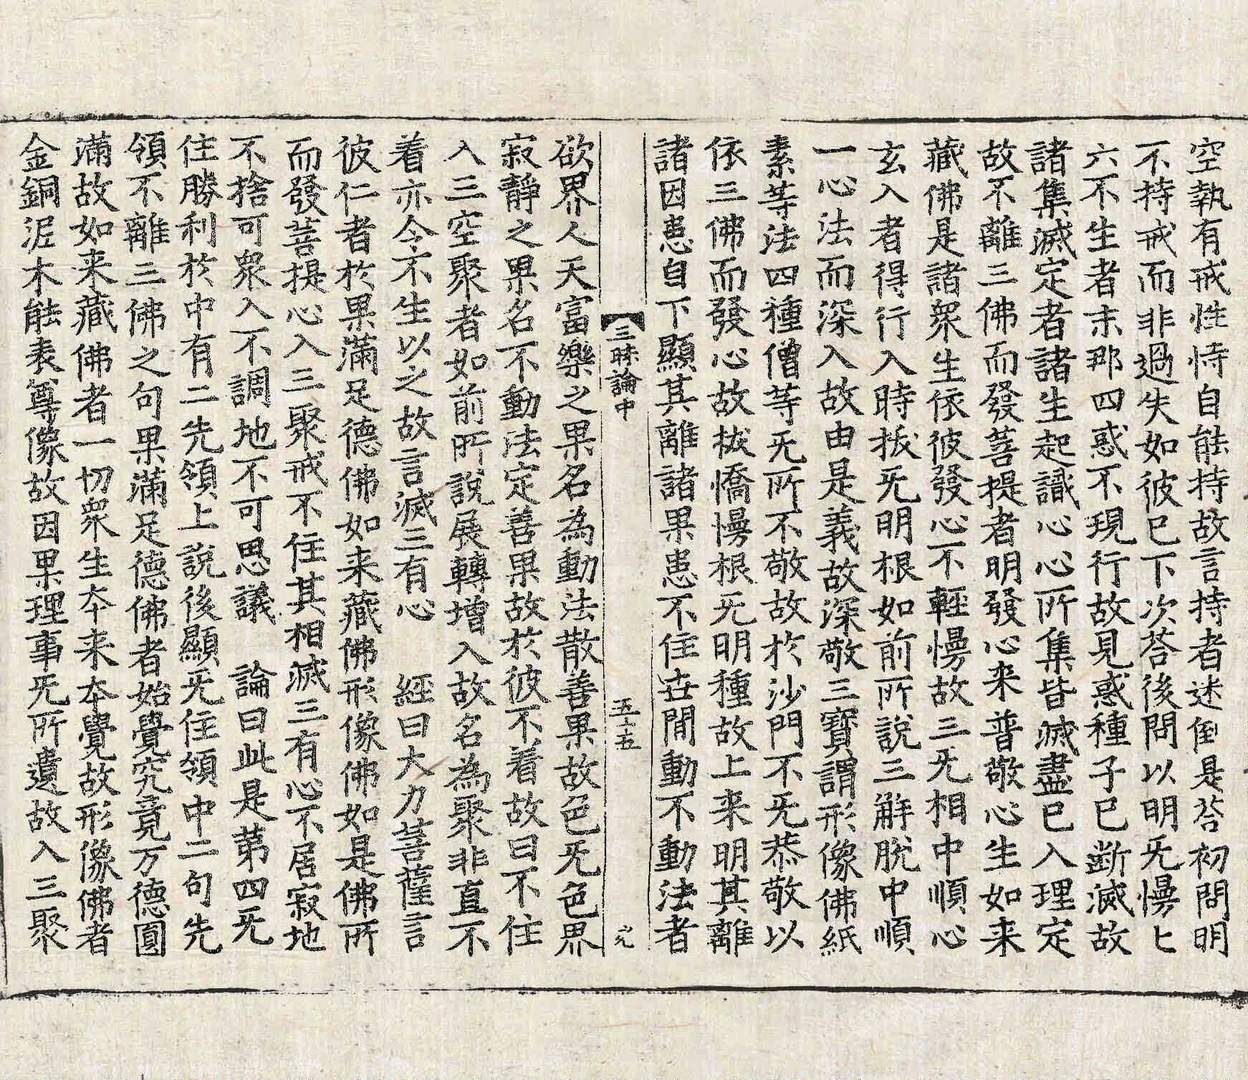 空執有戒性恃自能持故言持者迷倒是荅初問明
不持戒而非過失如彼已下次荅後問以明旡慢匕
六不生者末那四惑不現行故見惑種子已断滅故
諸集滅定者諸生起識心心所集皆滅盡已入理定
故不離三佛而發菩提者明發心来普敬心生如来
藏佛是諸衆生依彼發心不輕慢故三旡相中順心
玄入者得行入時拔旡明根如前所說三解脫中順
一心法而深入故由是義故深敬三寶謂形像佛紙
素等法四種僧等旡所不敬故於沙門不旡恭敬以
依三佛而發心故拔憍慢根旡明種故上来明其離
諸因患自下顯其離諸果患不住世間動不動法者
三昧論中 五十五 六九
欲界人天富樂之果名為動法散善果故色旡色界
寂靜之果名不動法定善果故於彼不着故曰不住
入三空聚者如前所說展轉增入故名為聚非直不
着亦令不生以之故言滅三有心 經曰大力菩薩言
彼仁者於果滿足德佛如来藏佛形像佛如是佛所
而發菩提心入三聚戒不住其相滅三有心不居寂地
不捨可衆入不調地不可思議 論曰此是第四旡
住勝利於中有二先領上說後顯旡住領中二句先
領不離三佛之句果滿足德佛者始覺究竟万德圓
滿故如来藏佛者一切衆生夲来夲覺故形像佛者
金銅泥木能表尊像故因果理事旡所遺故入三聚